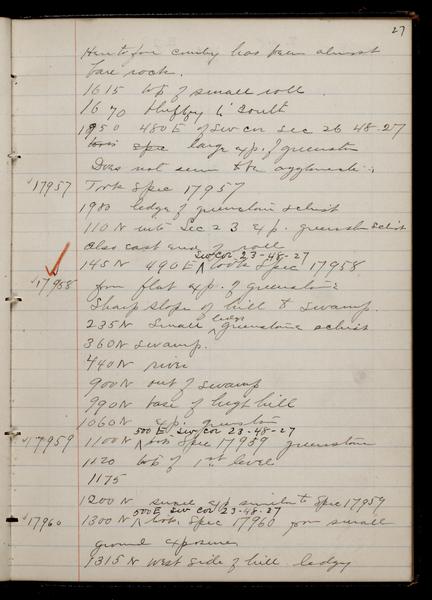 27
Heretofore country has been almost
bare rock.
1615 top of small roll
1670 to South
1950 480 E of SW cor Sec 26 48-27
took spec large exp. of greenston
Does not seem to be agglomerate
17957 Took Spec 17957
1980 ledge of greenstone schist
110 N into Sec 23 exp. greenston schist
also east end of roll
SW cor 23-48-27
145 N 490 E took Spec 17958
17958 from flat exp. of greenstone
Sharp slope of hill to swamp.
235 N Small ledge greenstone schist
360 N swamp.
440 N river
900 N out of swamp
990 N base of high hill
1060 N exp. greenston
500 E SW cor 23-48-27
17959 1100 N took Spec 17959 greenstone
1120 top of 1st level
1175
1200 N small exp similar to Spec 17959
500 E SW cor 23-48-27
17960 1300 N took Spec 17960 from small
ground exposure
1315 N west side of hill ledgy